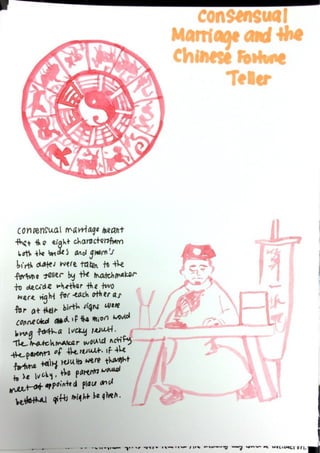 Consensual
Marriage and the
Chinese Fortune
Teller
consensual marriage meant
that the eight characters from
both the brides and groom's
birth dates were taken to the
fortune teller by the matchmaker
to decide whether the two
were right for each other as
far at their birth signs were
connected and if the union would
bring forth a lucky result.
The matchmaker would notify
the parents of the result. if the
fortune tally results were thought
to be lucky, the parents would
meet at appointed place and
betrothal gifts might be given.